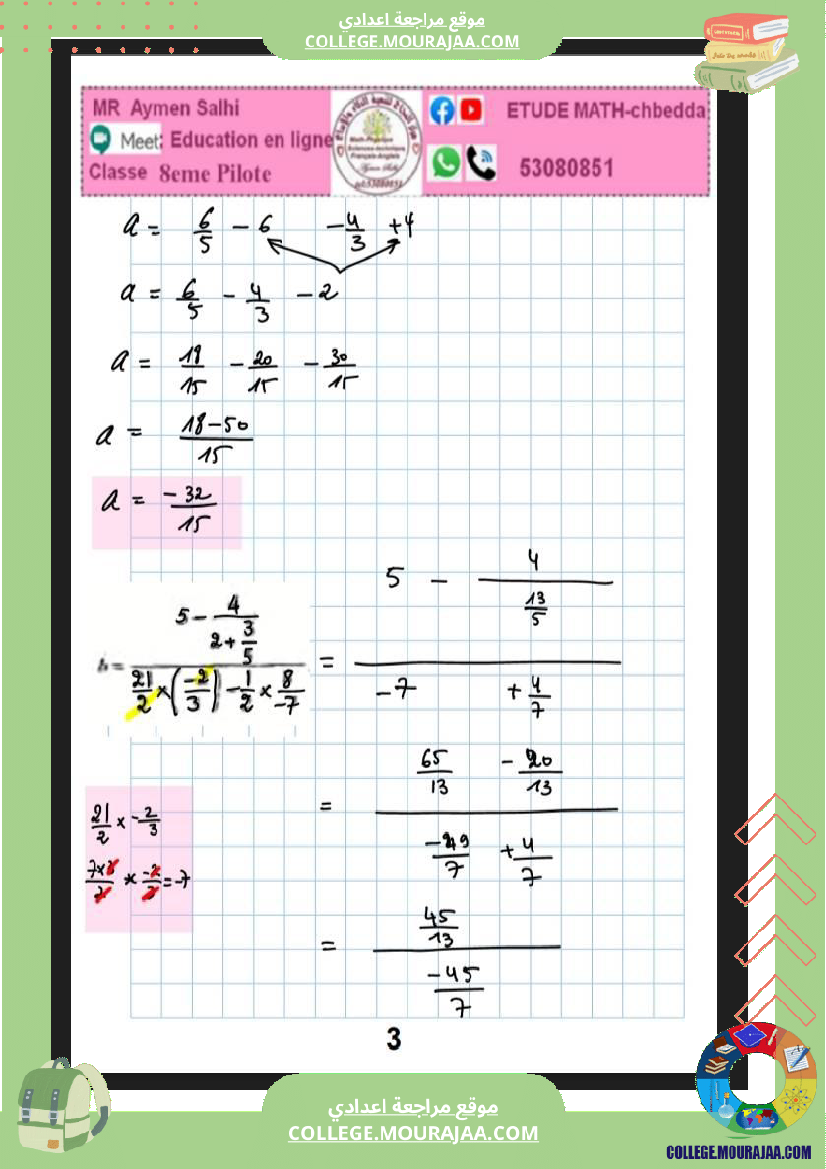 موقع مراجعة اعدادي
COLLEGE.MOURAJAA.COM
MR Aymen Salhi
Meet: Education en ligne
Classe 8eme Pilote
ETUDE MATH-chbedda
53080851
a = 6/5 - 6 - 4/3 + 4
a = 6/5 - 4/3 - 2
a = 18/15 - 20/15 - 30/15
a = (18-50)/15
a = -32/15
b = (5 - 4/(2+3/5)) / (21/2 × (-2/3) - 1/2 × 8/-7) = (5 - 4/(13/5)) / (-7 + 4/7)
= (65/13 - 20/13) / (-49/7 + 4/7)
21/2 × -2/3
7×3/2 × -2/3 = -7
= (45/13) / (-45/7)
3
موقع مراجعة اعدادي
COLLEGE.MOURAJAA.COM
COLLEGE.MOURAJAA.COM